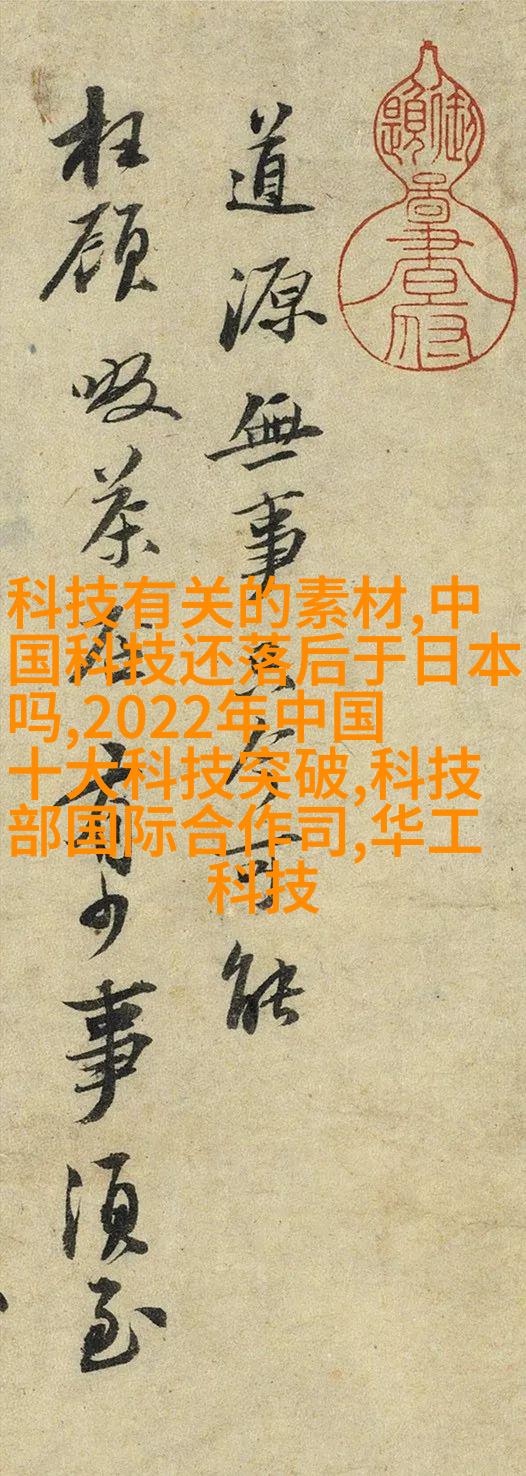 道源無事只今可能
枉顧啜茶否有少事須至
科技有关的素材,中
国科技还落后于日本
吗,2022年中国
十大科技突破,科技
部国际合作司,华工
科技